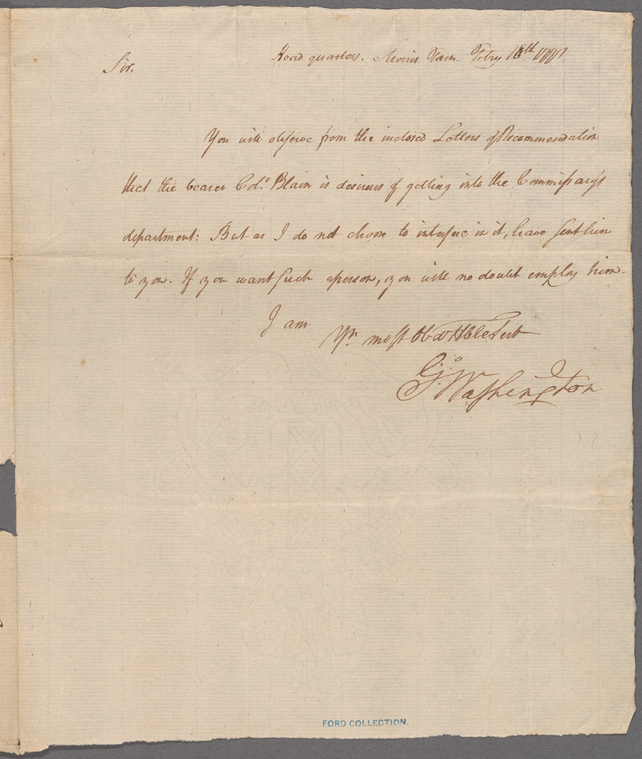 Head quarters. Morris Town. Febry 18th 1777
Sir,
You will observe from the inclosed Letters of Recommendation
that the bearer Colo. Blain is desirous of getting into the Commissary's
department: But as I do not choose to interfere in it, have sent him
to you. If you want such a person, you will no doubt employ him.
I am
Yr. most Obt Hble Servt
Go. Washington
FORD COLLECTION.